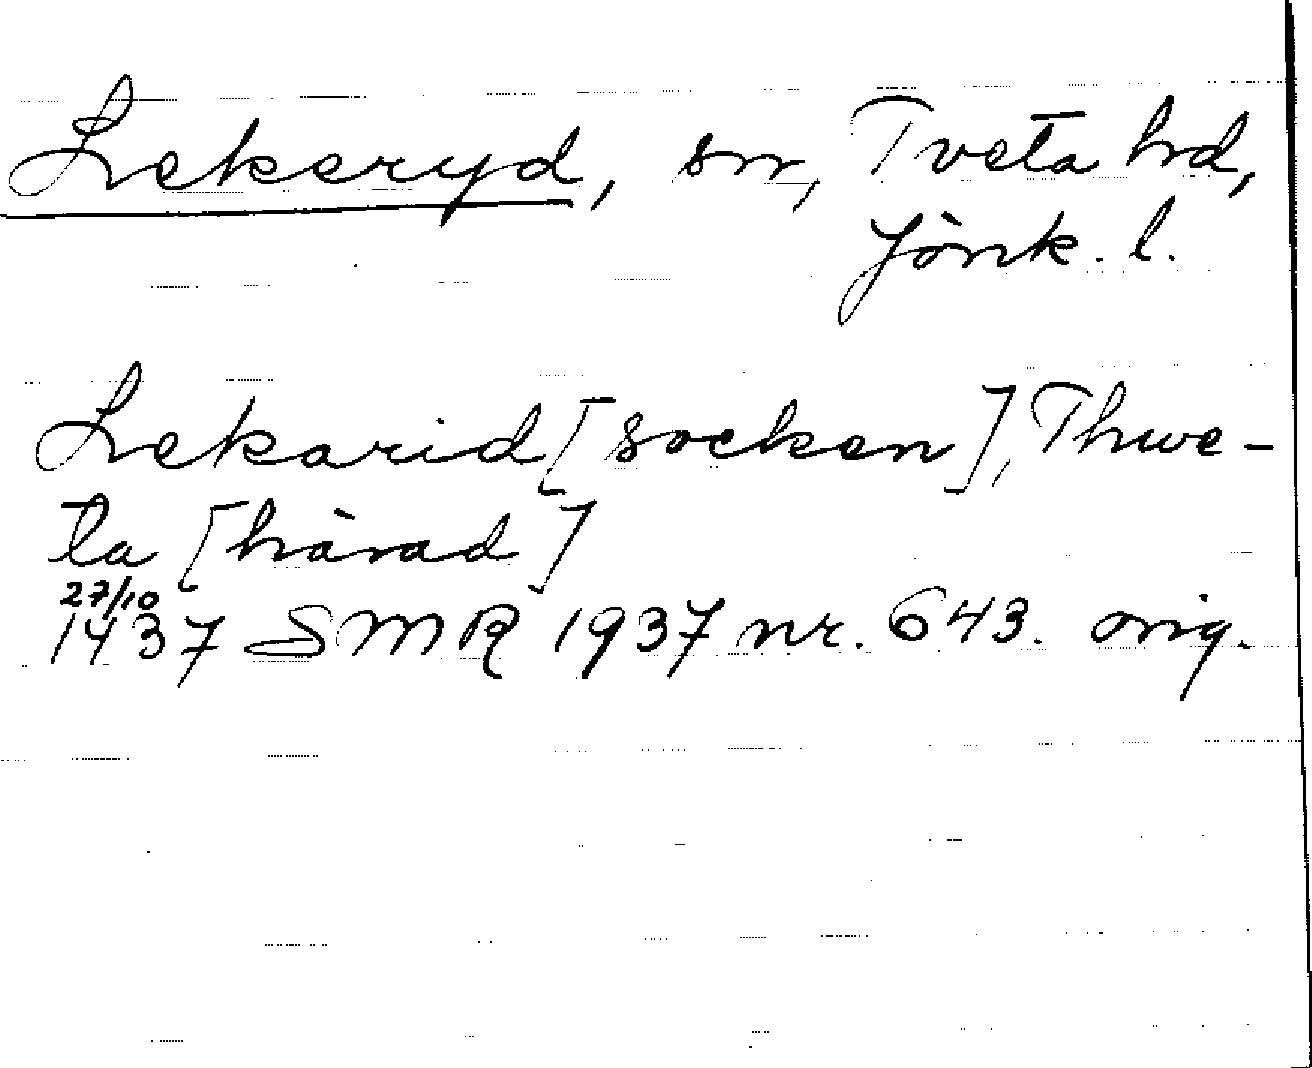 Lekeryd, sn, Tveta hd,
Jönk. l.
Lekarid [socken], Thwe-
ta [härad]
27/10
1437 SMR 1937 nr. 643. orig.